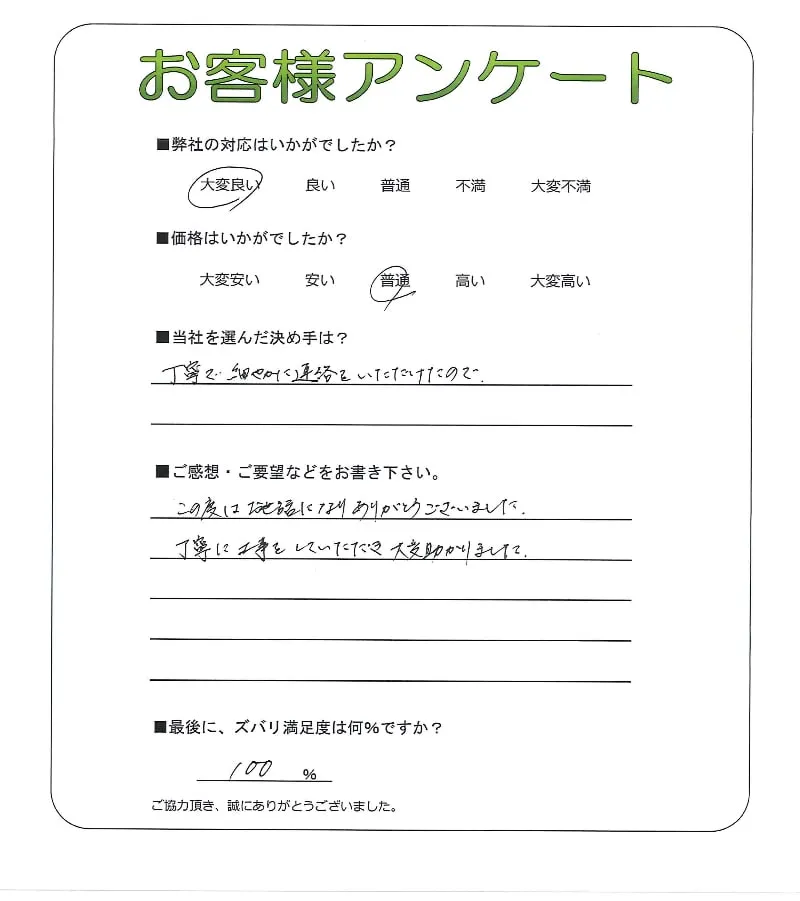 お客様アンケート
■弊社の対応はいかがでしたか？
大変良い 良い 普通 不満 大変不満
■価格はいかがでしたか？
大変安い 安い 普通 高い 大変高い
■当社を選んだ決め手は？
丁寧で細やかに連絡をいただけたので.
■ご感想・ご要望などをお書き下さい。
この度はお世話になりありがとうございました.
丁寧に工事をしていただき大変助かりました.
■最後に、ズバリ満足度は何%ですか？
100 %
ご協力頂き、誠にありがとうございました。